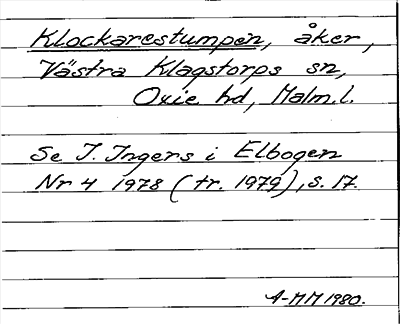 Klockarestumpen, åker,
Västra Klagstorps sn,
Oxie hd, Malm.l.
Se I. Ingers i Elbogen
Nr 4 1978 (tr. 1979), s. 17.
A-MM 1980.